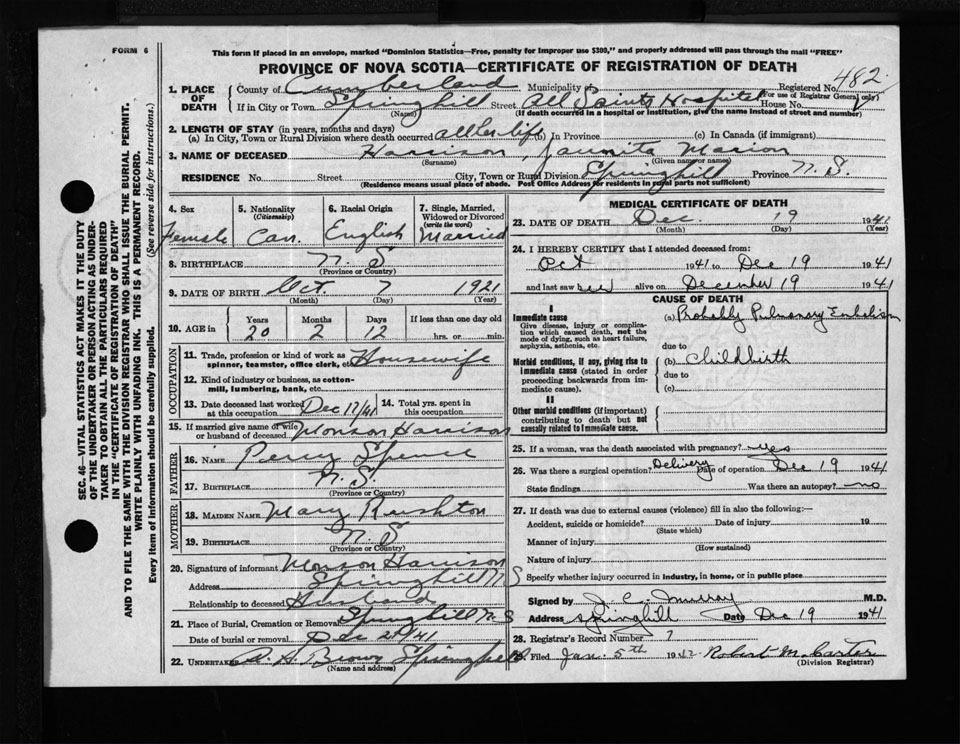 FORM 6
This form if placed in an envelope, marked "Dominion Statistics—Free, penalty for improper use $300," and properly addressed will pass through the mail "FREE"
PROVINCE OF NOVA SCOTIA—CERTIFICATE OF REGISTRATION OF DEATH
SEC. 46—VITAL STATISTICS ACT MAKES IT THE DUTY
OF THE UNDERTAKER OR PERSON ACTING AS UNDER-
TAKER TO OBTAIN ALL THE PARTICULARS REQUIRED
IN THE "CERTIFICATE OF REGISTRATION OF DEATH"
AND TO FILE THE SAME WITH THE DIVISION REGISTRAR WHO SHALL ISSUE THE BURIAL PERMIT.
WRITE PLAINLY WITH UNFADING INK. THIS IS A PERMANENT RECORD.
Every item of information should be carefully supplied. (See reverse side for instructions.)
1. PLACE OF DEATH County of Cumberland Municipality of Registered No. 482
(For use of Registrar General only)
If in City or Town Springhill Street All Saints Hospital House No.
(Name) (If death occurred in a hospital or institution, give the name instead of street and number)
2. LENGTH OF STAY (in years, months and days)
(a) In City, Town or Rural Division where death occurred all her life (b) In Province (c) In Canada (if immigrant)
3. NAME OF DECEASED Harrison, Juanita Marion
(Surname) (Given name or names)
RESIDENCE No. Street City, Town or Rural Division Springhill Province N.S.
(Residence means usual place of abode. Post Office Address for residents in rural parts not sufficient)
4. Sex 5. Nationality (Citizenship) 6. Racial Origin 7. Single, Married, Widowed or Divorced (write the word)
Female Can. English Married
8. BIRTHPLACE N. S
(Province or Country)
9. DATE OF BIRTH Oct. 7 1921
(Month) (Day) (Year)
10. AGE in Years Months Days If less than one day old
20 2 12 hrs. or min.
OCCUPATION
11. Trade, profession or kind of work as spinner, teamster, office clerk, etc. Housewife
12. Kind of industry or business, as cotton-mill, lumbering, bank, etc.
13. Date deceased last worked at this occupation Dec 17/41 14. Total yrs. spent in this occupation
15. If married give name of wife or husband of deceased Monson Harrison
FATHER
16. NAME Percy Spence
17. BIRTHPLACE N. S.
(Province or Country)
MOTHER
18. MAIDEN NAME Mary Rushton
19. BIRTHPLACE N. S
(Province or Country)
20. Signature of informant Monson Harrison
Address Springhill N S
Relationship to deceased Husband
21. Place of Burial, Cremation or Removal Springhill N S
Date of burial or removal Dec 21/41
22. Undertaker A. H. Brown Springhill
(Name and address)
MEDICAL CERTIFICATE OF DEATH
23. DATE OF DEATH Dec. 19 1941
(Month) (Day) (Year)
24. I HEREBY CERTIFY that I attended deceased from:
Oct 1941 to Dec 19 1941
and last saw her alive on December 19 1941
CAUSE OF DEATH
I
Immediate cause (a) Probably Pulmonary Embolism
Give disease, injury or complica-
tion which caused death, not the
mode of dying, such as heart failure,
asphyxia, asthenia, etc.
due to
Morbid conditions, if any, giving rise to (b) Childbirth
immediate cause (stated in order due to
proceeding backwards from im- (c)
mediate cause).
II
Other morbid conditions (if important)
contributing to death but not
causally related to immediate cause.
25. If a woman, was the death associated with pregnancy? Yes
26. Was there a surgical operation? Delivery Date of operation Dec 19 1941
State findings Was there an autopsy? no
27. If death was due to external causes (violence) fill in also the following:—
Accident, suicide or homicide? Date of injury 19
(State which)
Manner of injury
(How sustained)
Nature of injury
Specify whether injury occurred in industry, in home, or in public place
Signed by J. C. Murray M.D.
Address Springhill Date Dec 19 1941
28. Registrar's Record Number 7
29. Filed Jan. 5th 1942 Robert M. Carter
(Division Registrar)